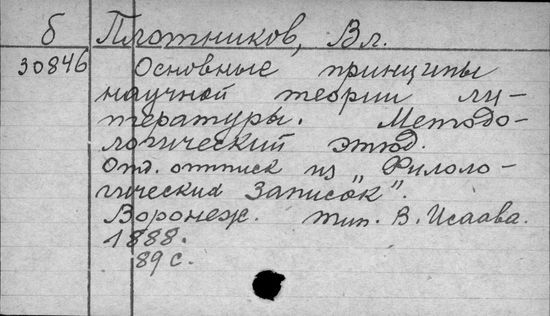 б Плотников, Вл.
30846 Основные принципы
научной теории ли-
тературы. Методо-
логический этюд.
Отд. оттиск из „Филоло-
гических Записок".
Воронеж. тип. В. Исаева.
1888.
89 с.